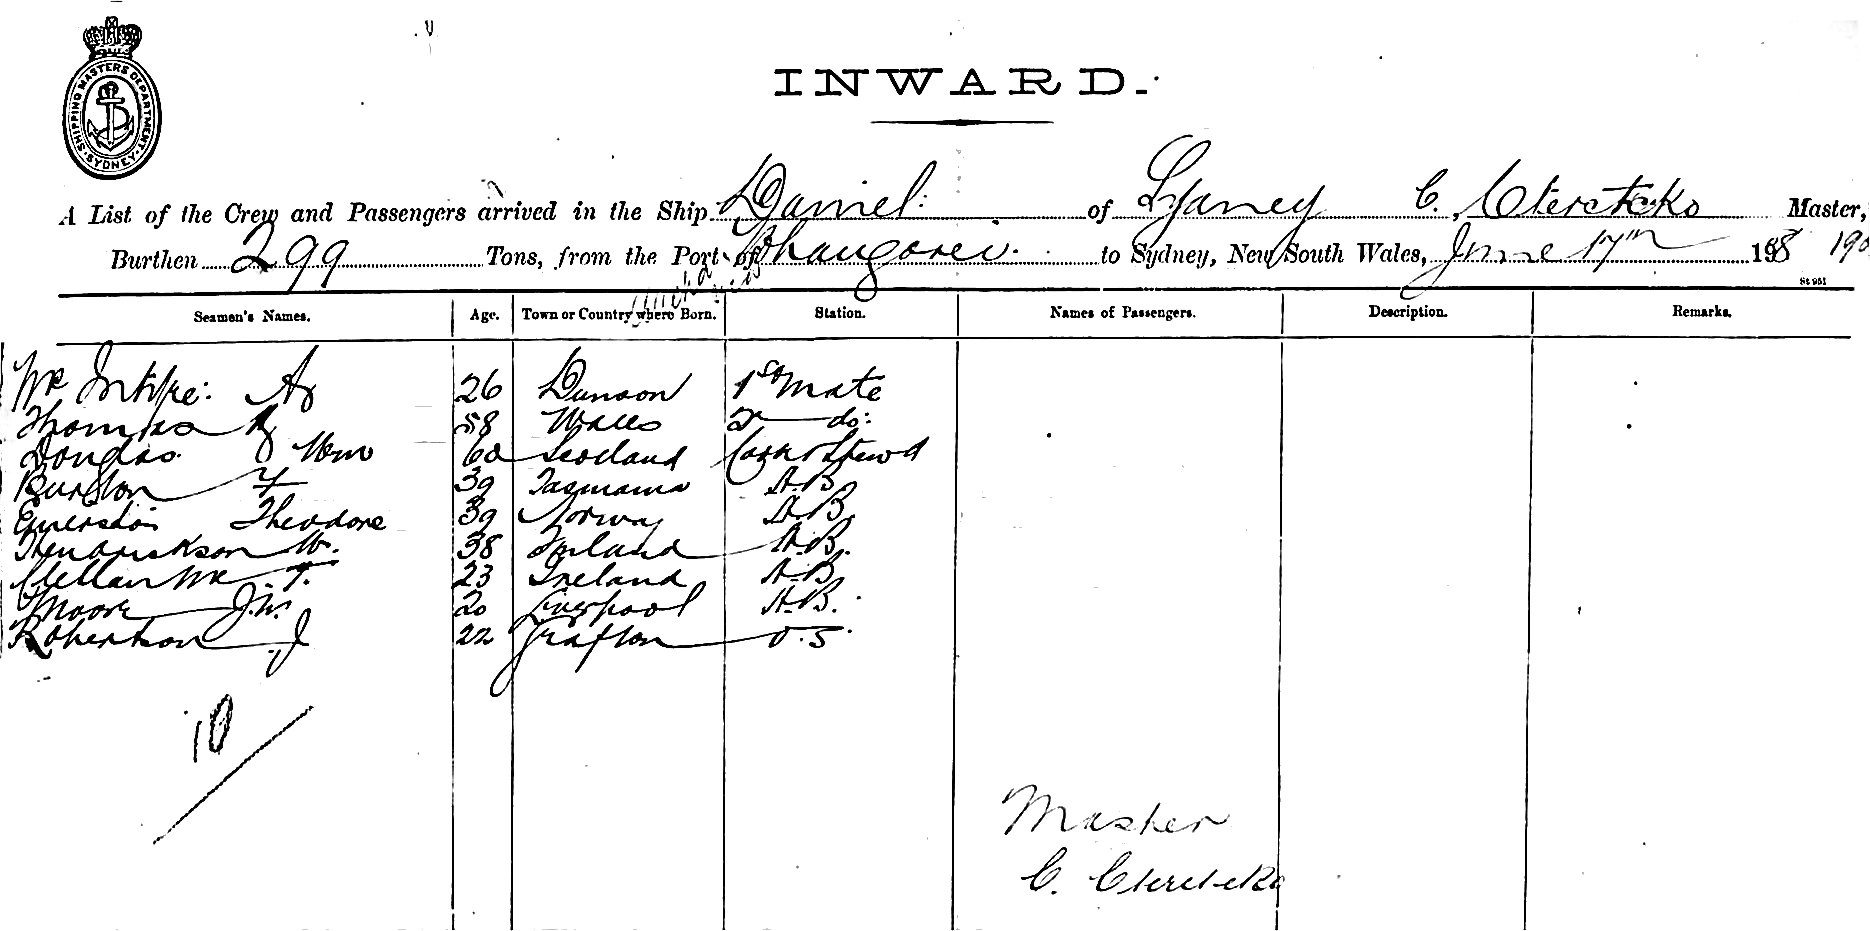 INWARD.
SHIPPING MASTERS DEPARTMENT. SYDNEY.
A List of the Crew and Passengers arrived in the Ship Daniel of Sydney C. Master,
Burthen 299 Tons, from the Port of Whangarei to Sydney, New South Wales, June 17th 198 190
St 951
Seamen's Names. Age. Town or Country where Born. Station. Names of Passengers. Description. Remarks.
Mc Intyre: A 26 Dunoon 1st Mate
Thomas R 58 Wales 2 do:
Douglas Wm 60 Scotland Cook & Stewd
Burston F 39 Tasmania A.B.
Emersion Theodore 39 Norway A.B.
Hendrickson W. 38 Finland A.B.
Clellan Mc T. 23 Ireland A.B.
Moore J.W. 20 Liverpool A.B.
Robertson J 22 Grafton O.S.
10
Master
C.